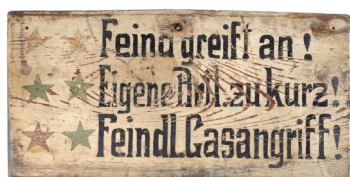 Feind greift an!
Eigene Artl. zu kurz!
Feindl. Gasangriff!